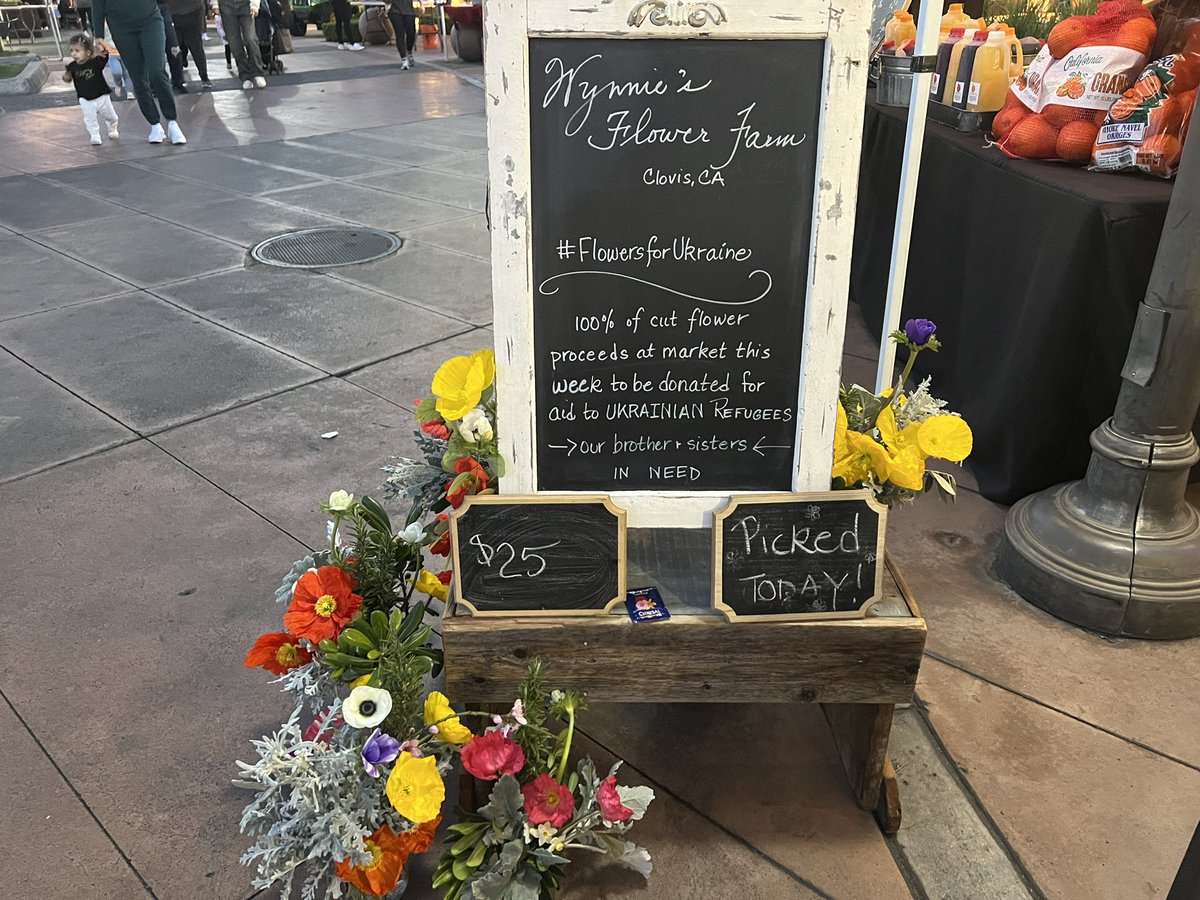 Wynnie's
Flower Farm
Clovis, CA
#FlowersforUkraine
100% of cut flower
proceeds at market this
week to be donated for
aid to UKRAINIAN REFUGEES
→our brother + sisters←
IN NEED
$25
Picked
TODAY!
California
NAVEL
ORANGES